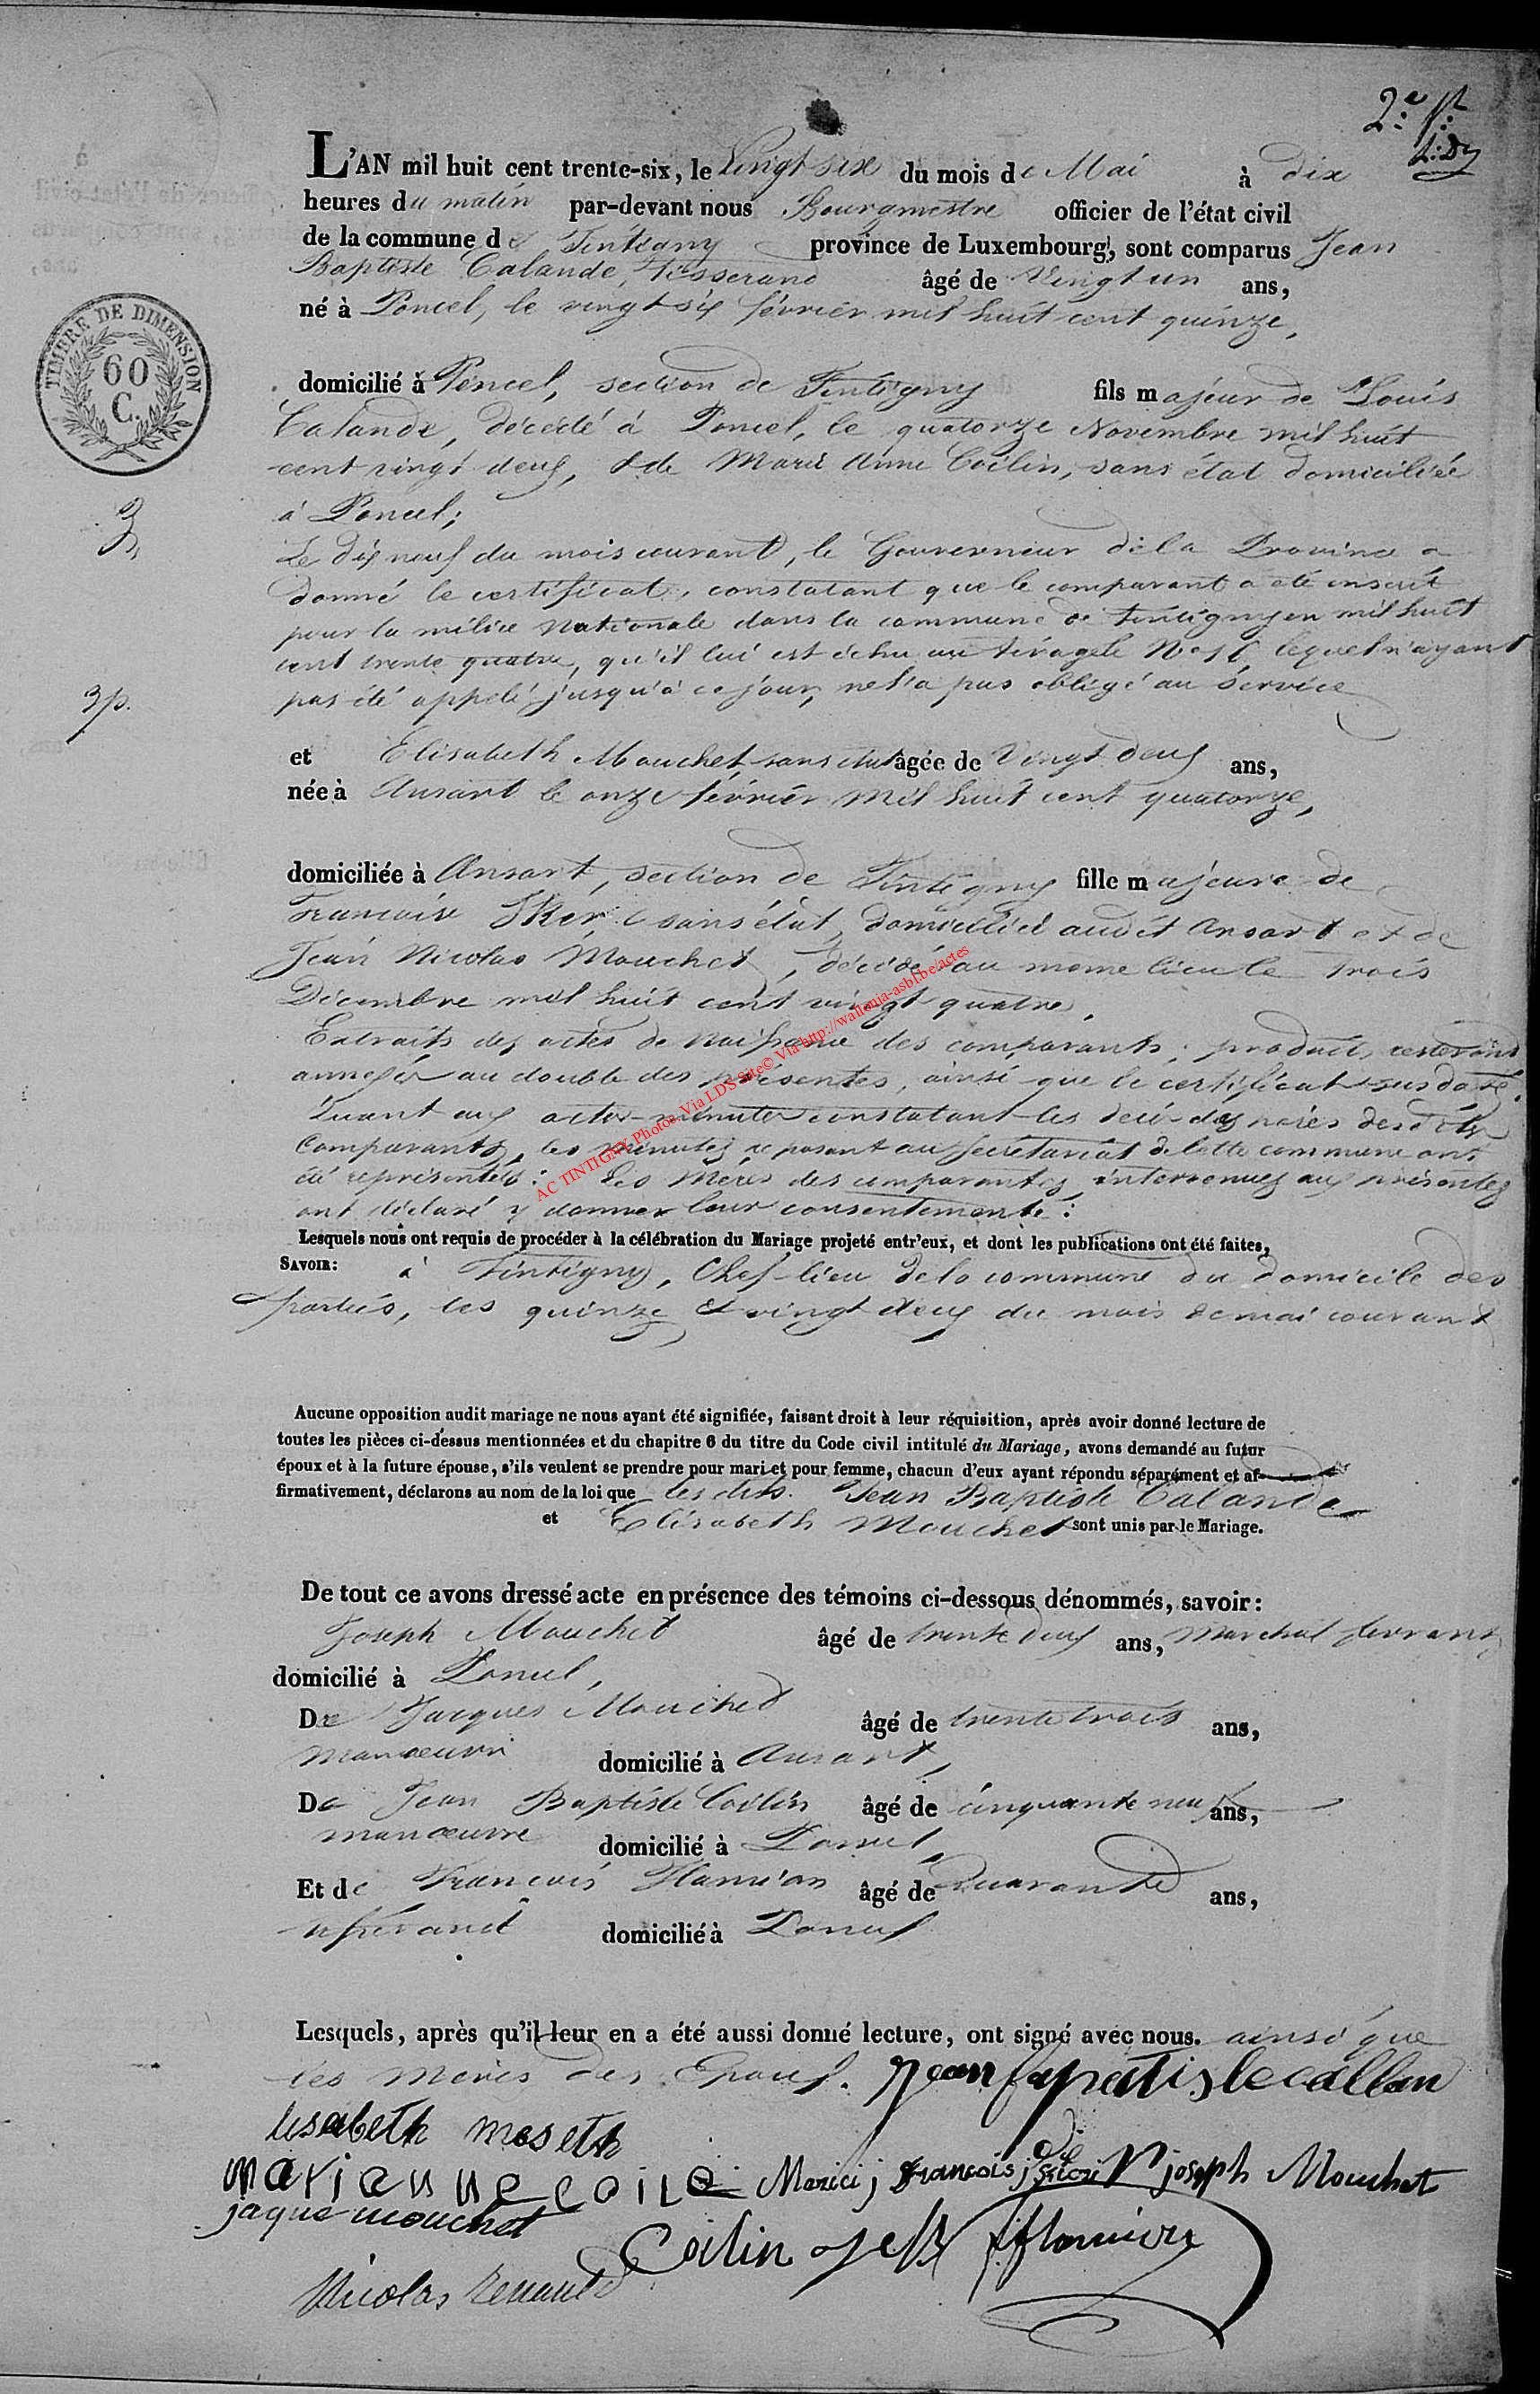 2e
L'AN mil huit cent trente-six, le Vingt six du mois de Mai à dix
heures du matin par-devant nous Bourgmestre officier de l'état civil
de la commune de Tintigny province de Luxembourg, sont comparus Jean
Baptiste Calande, tisserand âgé de Vingt un ans,
né à Poncel, le vingt six février mil huit cent quinze,
TIMBRE DE DIMENSION
60
C.
domicilié à Poncel, section de Tintigny fils majeur de Louis
Calande, décédé à Poncel, le quatorze Novembre mil huit
cent vingt deux, & de Marie Anne Coilin, sans état domiciliée
à Poncel;
3
Le dix neuf du mois courant, le Gouverneur de la Province a
donné le certificat, constatant que le comparant a été inscrit
pour la milice Nationale dans la commune de Tintigny en mil huit
cent trente quatre, qu'il lui est échu au tirage le No lequel n'ayant
pas été appelé jusqu'à ce jour, ne l'a pas obligé au service
3p.
et Elisabeth Mouchet, sans état âgée de Vingt deux ans,
née à Ansart le onze février mil huit cent quatorze,
domiciliée à Ansart, section de Tintigny fille majeure de
Francoise sans état, domicilié audit Ansart et de
Jean Nicolas Mouchet, décédé au meme lieu le trois
Décembre mil huit cent vingt quatre.
Extraits des actes de Naissance des comparants, produits resteront
annexés au double des présentes, ainsi que le certificat susdaté.
Quant aux actes minutes constatant les décès des pères desdits
Comparants, les minutes reposant au secrétariat de cette commune ont
été représentés: Les Mères des comparants, intervenues aux présentes
ont déclaré y donner leur consentement:
Lesquels nous ont requis de procéder à la célébration du Mariage projeté entr'eux, et dont les publications ont été faites,
SAVOIR: à Tintigny, Chef-lieu de la commune du domicile des
parties, les quinze et vingt deux du mois de mai courant
Aucune opposition audit mariage ne nous ayant été signifiée, faisant droit à leur réquisition, après avoir donné lecture de
toutes les pièces ci-dessus mentionnées et du chapitre 6 du titre du Code civil intitulé du Mariage, avons demandé au futur
époux et à la future épouse, s'ils veulent se prendre pour mari et pour femme, chacun d'eux ayant répondu séparément et af-
firmativement, déclarons au nom de la loi que les dits. Jean Baptiste Calande
et Elisabeth Mouchet sont unis par le Mariage.
De tout ce avons dressé acte en présence des témoins ci-dessous dénommés, savoir:
Joseph Mouchet âgé de trente deux ans, Marchal ferrant
domicilié à Poncel,
De Jacques Mouchet âgé de trente trois ans,
manoeuvre domicilié à Ansart,
De Jean Baptiste Coilin âgé de cinquante neuf ans,
manoeuvre domicilié à Poncel,
Et de François Hamion âgé de Quarante ans,
domicilié à Poncel
Lesquels, après qu'il leur en a été aussi donné lecture, ont signé avec nous. ainsi que
les Mères des Epoux. Jean bapatis lecallan
lisabeth moseth
marianne coile Marici j François joseph Mouchet
jaque mouchet
Coilin
Nicolas Renauld
AC TINTIGNY Photos Via LDS Site© Via http://wallonia-asbl.be/actes